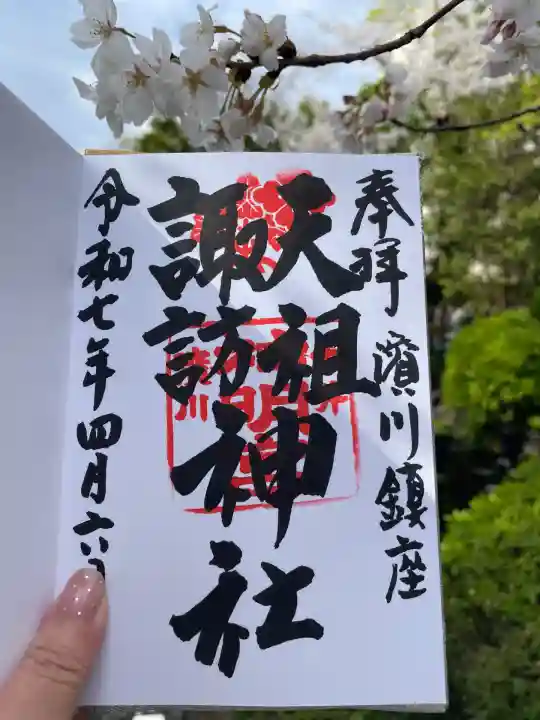 奉拝 濱川鎮座
天祖
諏訪
神社
令和七年四月六日